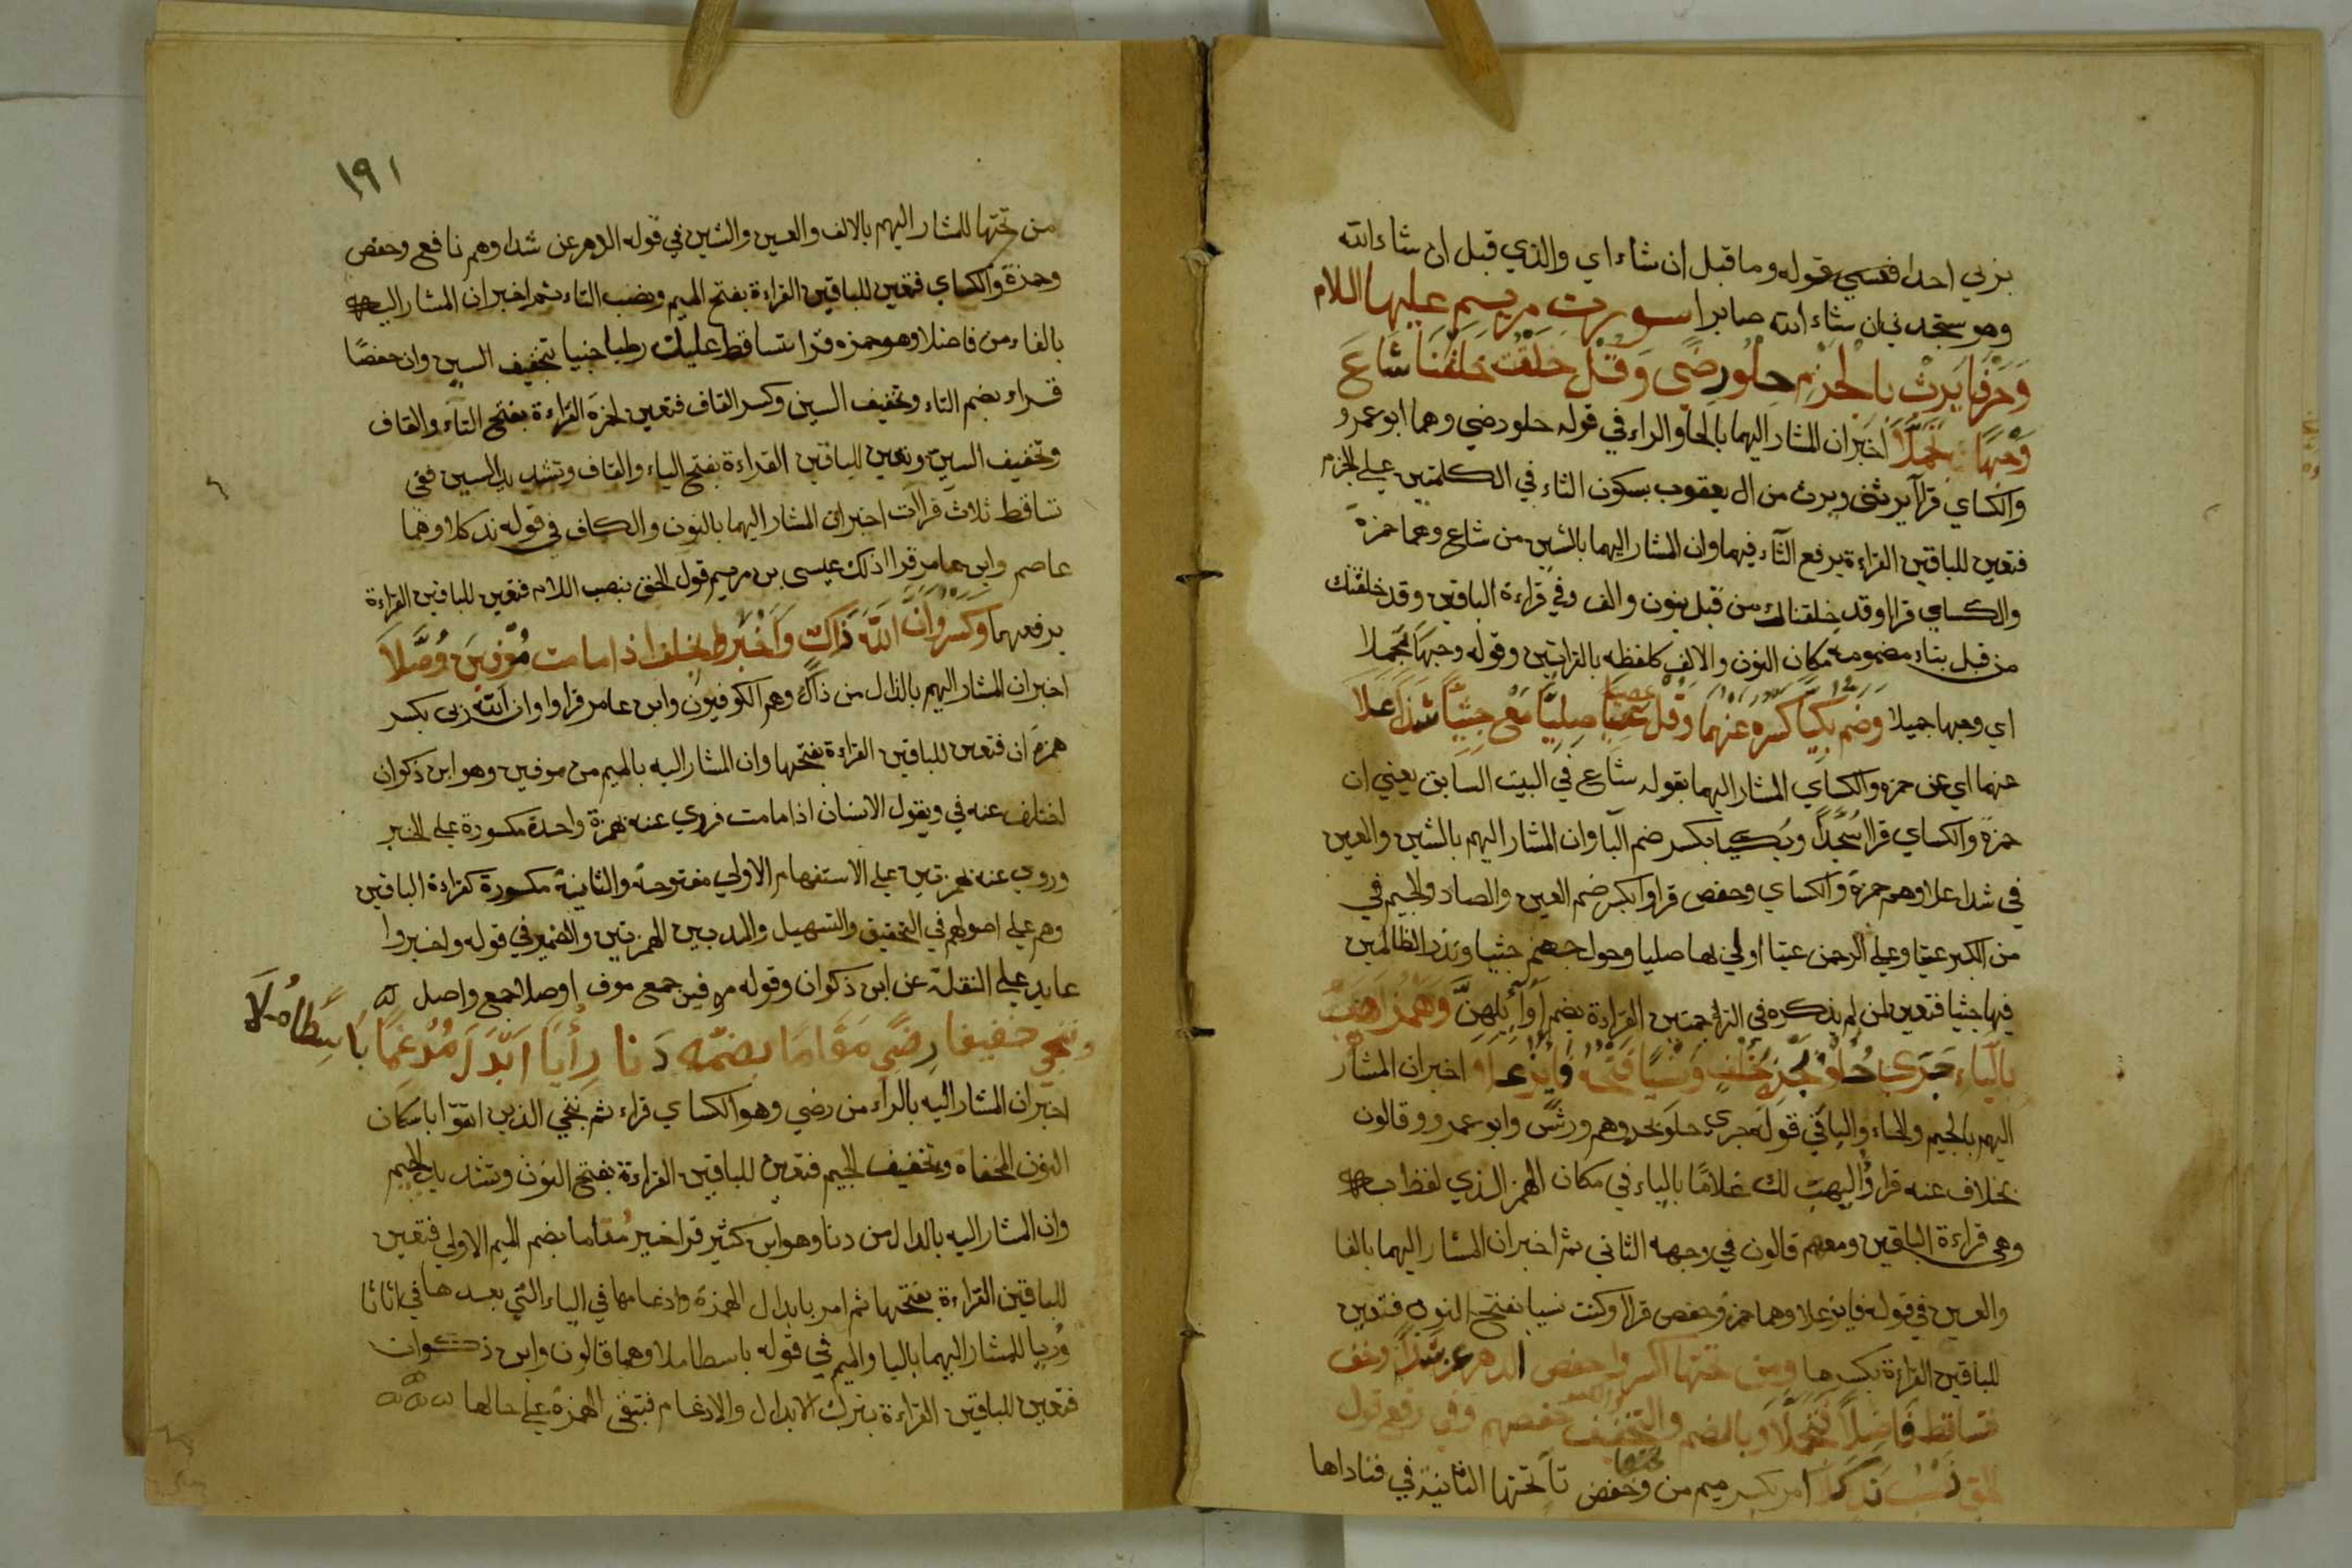 بزبي احدا ففسي قوله وما قبل ان شاء اي والذي قبل ان شاء الله
وهو ستجدني ان شاء الله صابرا سورت مريم عليها السلام
وَحَرْفَا يَرِثْ بِالْجَزْمِ حِلْوُ رِضًى وَقُلْ خَلَقْتُ خَلَقْنَا شَاعَ
وَجْهًا مُجَمَّلَا اخبر ان المشار اليهما بالحا والراء في قوله حلو رضي وهما ابو عمرو
والكساي قرآ يرثني ويرث من ال يعقوب بسكون الثاء في الكلمتين علي الجزم
فتعين للباقين القراءة برفع الثاء فيهما وان المشار اليهما بالشين من شاع وهما حمزة
والكساي قرا وقد خلقناك من قبل بنون والف وفي قراءة الباقين وقد خلقتك
من قبل بتاء مضمومة مكان النون والالف كلفظه بالقراتين وقوله وجها مجملا
اي وجها جميلا وضم بكيا كسره عنهما وقل عتيا صليا مع جثيا شذا علا
عنهما اي عن حمزه والكساي المشار اليهما بقوله شاع في البيت السابق يعني ان
حمزة والكساي قرا سُجَّدًا وبكيا بكسر ضم البا وان المشار اليهم بالشين والعين
في شذا علا وهم حمزة والكساي وحفص قراوا بكسر ضم العين والصاد والجيم في
من الكبر عتيا وعلي الرحمن عتيا اولي بها صليا وحول جهنم جثيا ونذر الظالمين
فيها جثيا فتعين لمن لم يذكره في الترجمتين القراءة بضم اوائلهن وهمز اهب
بالياء جرى حلو بحره بخلف ونسيا فتحه فائز علا اخبر ان المشار
اليهم بالجيم والحاء والبا في قوله جري حلو بحره وهم ورش وابو عمرو وقالون
بخلاف عنه قراوا ليهب لك غلاما بالياء في مكان الهمز الذي لفظ به
وهي قراءة الباقين ومعهم قالون في وجهه الثاني ثم اخبر ان المشار اليهما بالفا
والعين في قوله فايز علا وهما حمزة وحفص قرا وكنت نسيا بفتح النون فتعين
للباقين القراءة بكسرها ومن تحتها اكسر واخفض الدهر عن شذا وخف
تساقط فاصلا فتحملا وبالضم والتخفيف والكسر حفصهم وفي رفع قول
الحق نصب ند كلا امر بكسر ميم من وخفض تا تحتها الثانية في فناداها
تحتها
١٩١
من تحتها للمشار اليهم بالالف والعين والشين في قوله الدهر عن شذا وهم نافع وحفص
وحمزة والكساي فتعين للباقين القراءة بفتح الميم ونصب التاء ثم اخبر ان المشار اليه
بالفاء من فاصلا وهو حمزه قرا تساقط عليك رطبا جنيا بتخفيف السين وان حفصًا
قراء بضم التاء وتخفيف السين وكسر القاف فتعين لحمزة القراءة بفتح التاء والقاف
وتخفيف السين وتعين للباقين القراءة بفتح الياء والقاف وتشديد السين ففي
تساقط ثلاث قراآت اخبر ان المشار اليهما بالنون والكاف في قوله ند كلا وهما
عاصم وابن عامر قرا ذلك عيسى بن مريم قول الحق بنصب اللام فتعين للباقين القراءة
برفعهما وكسر وان الله ذاك واخبروا بخلف اذا ما مت موفين وصلا
اخبر ان المشار اليهم بالذال من ذاك وهم الكوفيون وابن عامر قراوا وان الله ربي بكسر
همزة ان فتعين للباقين القراءة بفتحها وان المشار اليه بالميم من موفين وهو ابن ذكوان
اختلف عنه في ويقول الانسان اذا ما مت فروي عنه بهمزة واحدة مكسورة علي الخبر
وروي عنه بهمزتين علي الاستفهام الاولي مفتوحة والثانية مكسورة كقراءة الباقين
وهم علي اصولهم في التحقيق والتسهيل والمد بين الهمزتين والضمير في قوله واخبروا
عايد علي النقلة عن ابن ذكوان وقوله موفين جمع موف اوصلا جمع واصل
وننجي خفيفا رضي مقاما بضمه دنا رأيا ابدل مدغما باسطا ملا
اخبر ان المشار اليه بالراء من رضي وهو الكساي قراء ثم ننجي الذين اتقوا باسكان
النون المخفاه وتخفيف الجيم فتعين للباقين القراءة بفتح النون وتشديد الجيم
وان المشار اليه بالدال من دنا وهو ابن كثير قرا خير مقاما بضم الميم الاولي فتعين
للباقين القراءة بفتحها ثم امر بابدال الهمزة وادغامها في الياء التي بعدها في اثاثا
وريا للمشار اليهما بالبا والميم في قوله باسطا ملا وهما قالون وابن ذكوان
فتعين للباقين القراءة بترك الابدال والادغام فتبقى الهمزة علي حالها